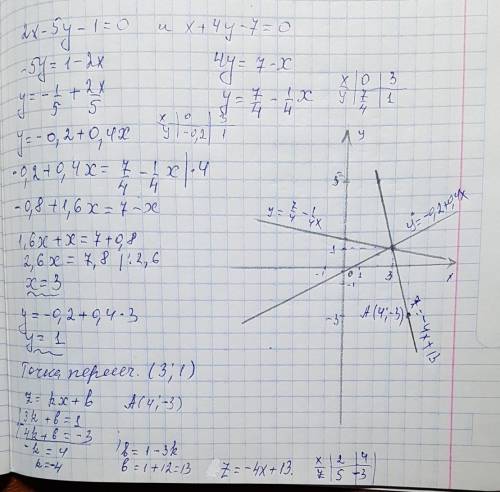 2x-5y-1=0 и x+4y-7=0
-5y=1-2x 4y=7-x
x 0 3
y 7/4 1
y=-1/5+2x/5 y=7/4-1/4x
x 0 3
y -0,2 1
y=-0,2+0,4x
-0,2+0,4x=7/4-1/4x|·4
-0,8+1,6x=7-x
1,6x+x=7+0,8
2,6x=7,8 |:2,6
x=3
y=-0,2+0,4·3
y=1
Точка пересеч. (3;1)
z=kx+b A(4;-3)
3k+b=1
4k+b=-3
-k=4 b=1-3k
k=-4 b=1+12=13 z=-4x+13.
x 2 4
z 5 -3
y
5
y=7/4-1/4x
y=-0,2+0,4x
1
-1 0 1 3 x
-1
-3 A(4;-3)
z=-4x+13